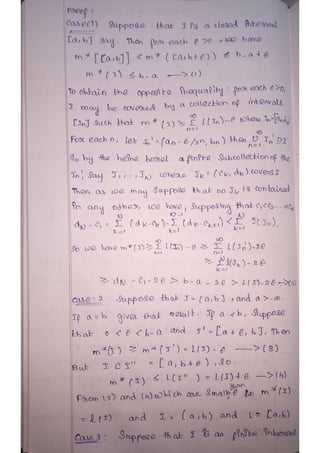 Proof:
Case(1) Suppose that I is a closed interval
[a, b] say. Then for each ε > 0, we have
m* [[a, b]] ≤ m* ([a, b+ε)) ≤ b - a + ε
m* (I) ≤ b - a → (1)
To obtain the opposite inequality: for each ε > 0,
I may be covered by a collection of intervals
[In] such that m* (I) ≥ ∞Σn=1 l(In) - ε where In = [an, bn)
For each n, let In' = (an - ε/2n, bn) then ∞∪n=1 In' ⊃ I
So by the heine borel. a finite subcollection of the
In', say J1, ..., JN where Jk = (ck, dk) covers I.
Then as we may suppose that no Jk is contained
in any other we have, supposing that c1 < c2 ... < cN
dN - c1 = NΣk=1 (dk - ck) - N-1Σk=1 (dk - ck+1) < NΣk=1 l(Jk).
So we have m*(I) ≥ ∞Σn=1 l(In) - ε ≥ ∞Σn=1 l(In') - 2ε
≥ NΣk=1 l(Jk) - 2ε
≥ dN - c1 - 2ε > b - a - 2ε > l(I) - 2ε → (2)
Case: 2 Suppose that I = (a, b], and a > -∞.
If a = b gives that result. If a < b, suppose
that 0 < ε < b - a and I' = [a + ε, b]. Then
m*(I) ≥ m*(I') = l(I) - ε → (3).
But I ⊂ I'' = [a, b+ε), so.
m* (I) ≤ l(I'') = l(I) + ε → (4)
From (3) and (4) which are small than ε so m* (I)
= l(I) and I = (a, b) and I = [a, b)
Case 3: Suppose that I is an infinite interval